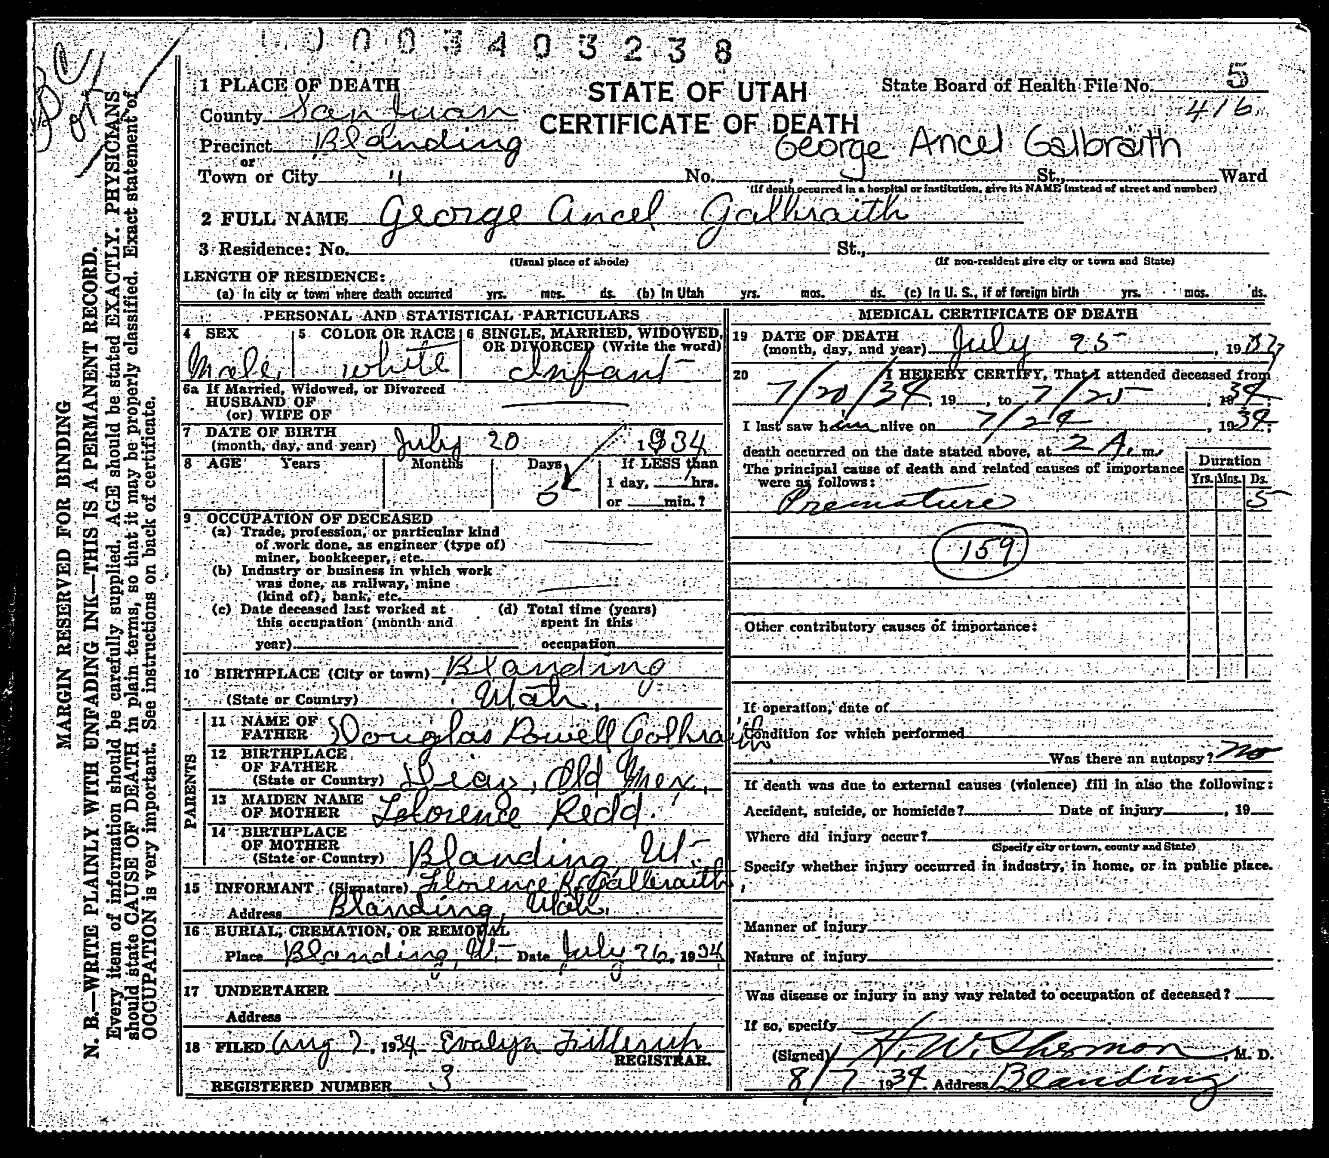 0003403238
1 PLACE OF DEATH
STATE OF UTAH
State Board of Health File No. 5
County San Juan
CERTIFICATE OF DEATH
416
Precinct Blanding
George Ancel Galbraith
or
Town or City " No. St., Ward
(If death occurred in a hospital or institution, give its NAME instead of street and number)
2 FULL NAME George Ancel Galbraith
3 Residence: No. St.,
(Usual place of abode) (If non-resident give city or town and State)
LENGTH OF RESIDENCE:
(a) In city or town where death occurred yrs. mos. ds. (b) In Utah yrs. mos. ds. (c) In U. S., if of foreign birth yrs. mos. ds.
PERSONAL AND STATISTICAL PARTICULARS
4 SEX 5 COLOR OR RACE 6 SINGLE, MARRIED, WIDOWED,
OR DIVORCED (Write the word)
Male white Infant
6a If Married, Widowed, or Divorced
HUSBAND OF
(or) WIFE OF
7 DATE OF BIRTH
(month, day, and year) July 20 1934
8 AGE Years Months Days If LESS than
5 1 day, hrs.
or min.?
9 OCCUPATION OF DECEASED
(a) Trade, profession, or particular kind
of work done, as engineer (type of)
miner, bookkeeper, etc.
(b) Industry or business in which work
was done, as railway, mine
(kind of), bank, etc.
(c) Date deceased last worked at (d) Total time (years)
this occupation (month and spent in this
year) occupation
10 BIRTHPLACE (City or town) Blanding
(State or Country) Utah.
PARENTS
11 NAME OF
FATHER Douglas Powell Galbraith
12 BIRTHPLACE
OF FATHER
(State or Country) Diaz, Old Mex.
13 MAIDEN NAME
OF MOTHER Florence Redd.
14 BIRTHPLACE
OF MOTHER
(State or Country) Blanding, Ut.
15 INFORMANT (Signature) Florence R. Galbraith
Address Blanding, Utah.
16 BURIAL, CREMATION, OR REMOVAL
Place Blanding, Ut. Date July 26, 1934
17 UNDERTAKER
Address
18 FILED Aug 7, 1934 Evalyn
REGISTRAR.
REGISTERED NUMBER 3
MEDICAL CERTIFICATE OF DEATH
19 DATE OF DEATH
(month, day, and year) July 25, 19
20 I HEREBY CERTIFY, That I attended deceased from
7/20/34, 19 , to 7/25, 1934.
I last saw him alive on 7/24, 1934;
death occurred on the date stated above, at 2 A. m.
The principal cause of death and related causes of importance
were as follows:
Duration
Yrs. Mos. Ds.
Premature 5
159
Other contributory causes of importance:
If operation, date of
Condition for which performed
Was there an autopsy? No
If death was due to external causes (violence) fill in also the following:
Accident, suicide, or homicide? Date of injury , 19
Where did injury occur?
(Specify city or town, county and State)
Specify whether injury occurred in industry, in home, or in public place.
Manner of injury
Nature of injury
Was disease or injury in any way related to occupation of deceased?
If so, specify
(Signed) H. W. Sherman, M. D.
8/7 1934 Address Blanding
MARGIN RESERVED FOR BINDING
N. B.—WRITE PLAINLY WITH UNFADING INK—THIS IS A PERMANENT RECORD.
Every item of information should be carefully supplied. AGE should be stated EXACTLY. PHYSICIANS
should state CAUSE OF DEATH in plain terms, so that it may be properly classified. Exact statement of
OCCUPATION is very important. See instructions on back of certificate.